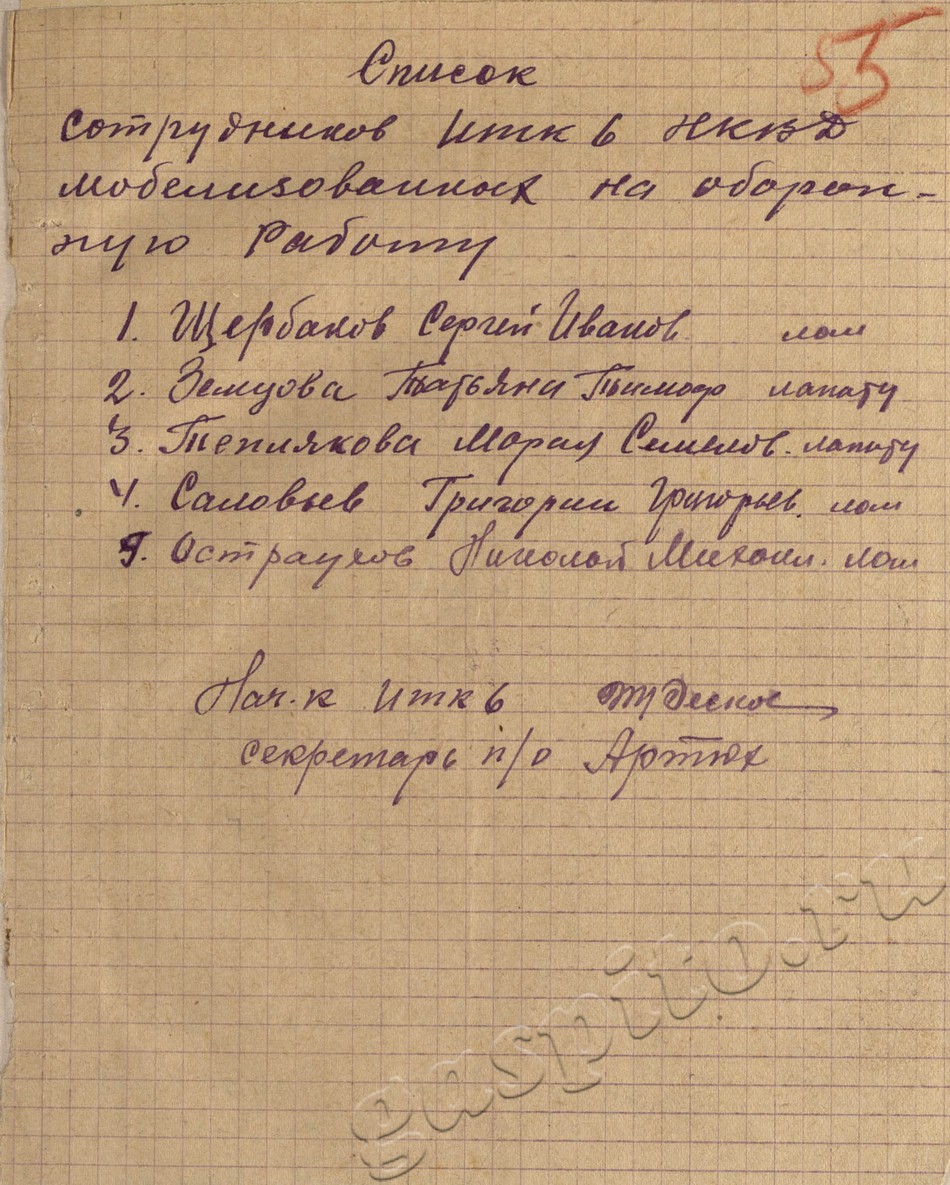 55
Список
сотрудников ИТК 6 НКВД
мобелизованных на оборон-
ную работу
1. Щербаков Сергей Иванов. лом
2. Земцова Татьяна Тимоф лапату
3. Теплякова Мория Семенов. лапату
4. Саловьев Григории Григорьев. лом
5. Остраухов Николай Михаил. лом
Нач.к ИТК 6
секретарь п/о Артюх
gaspito.ru